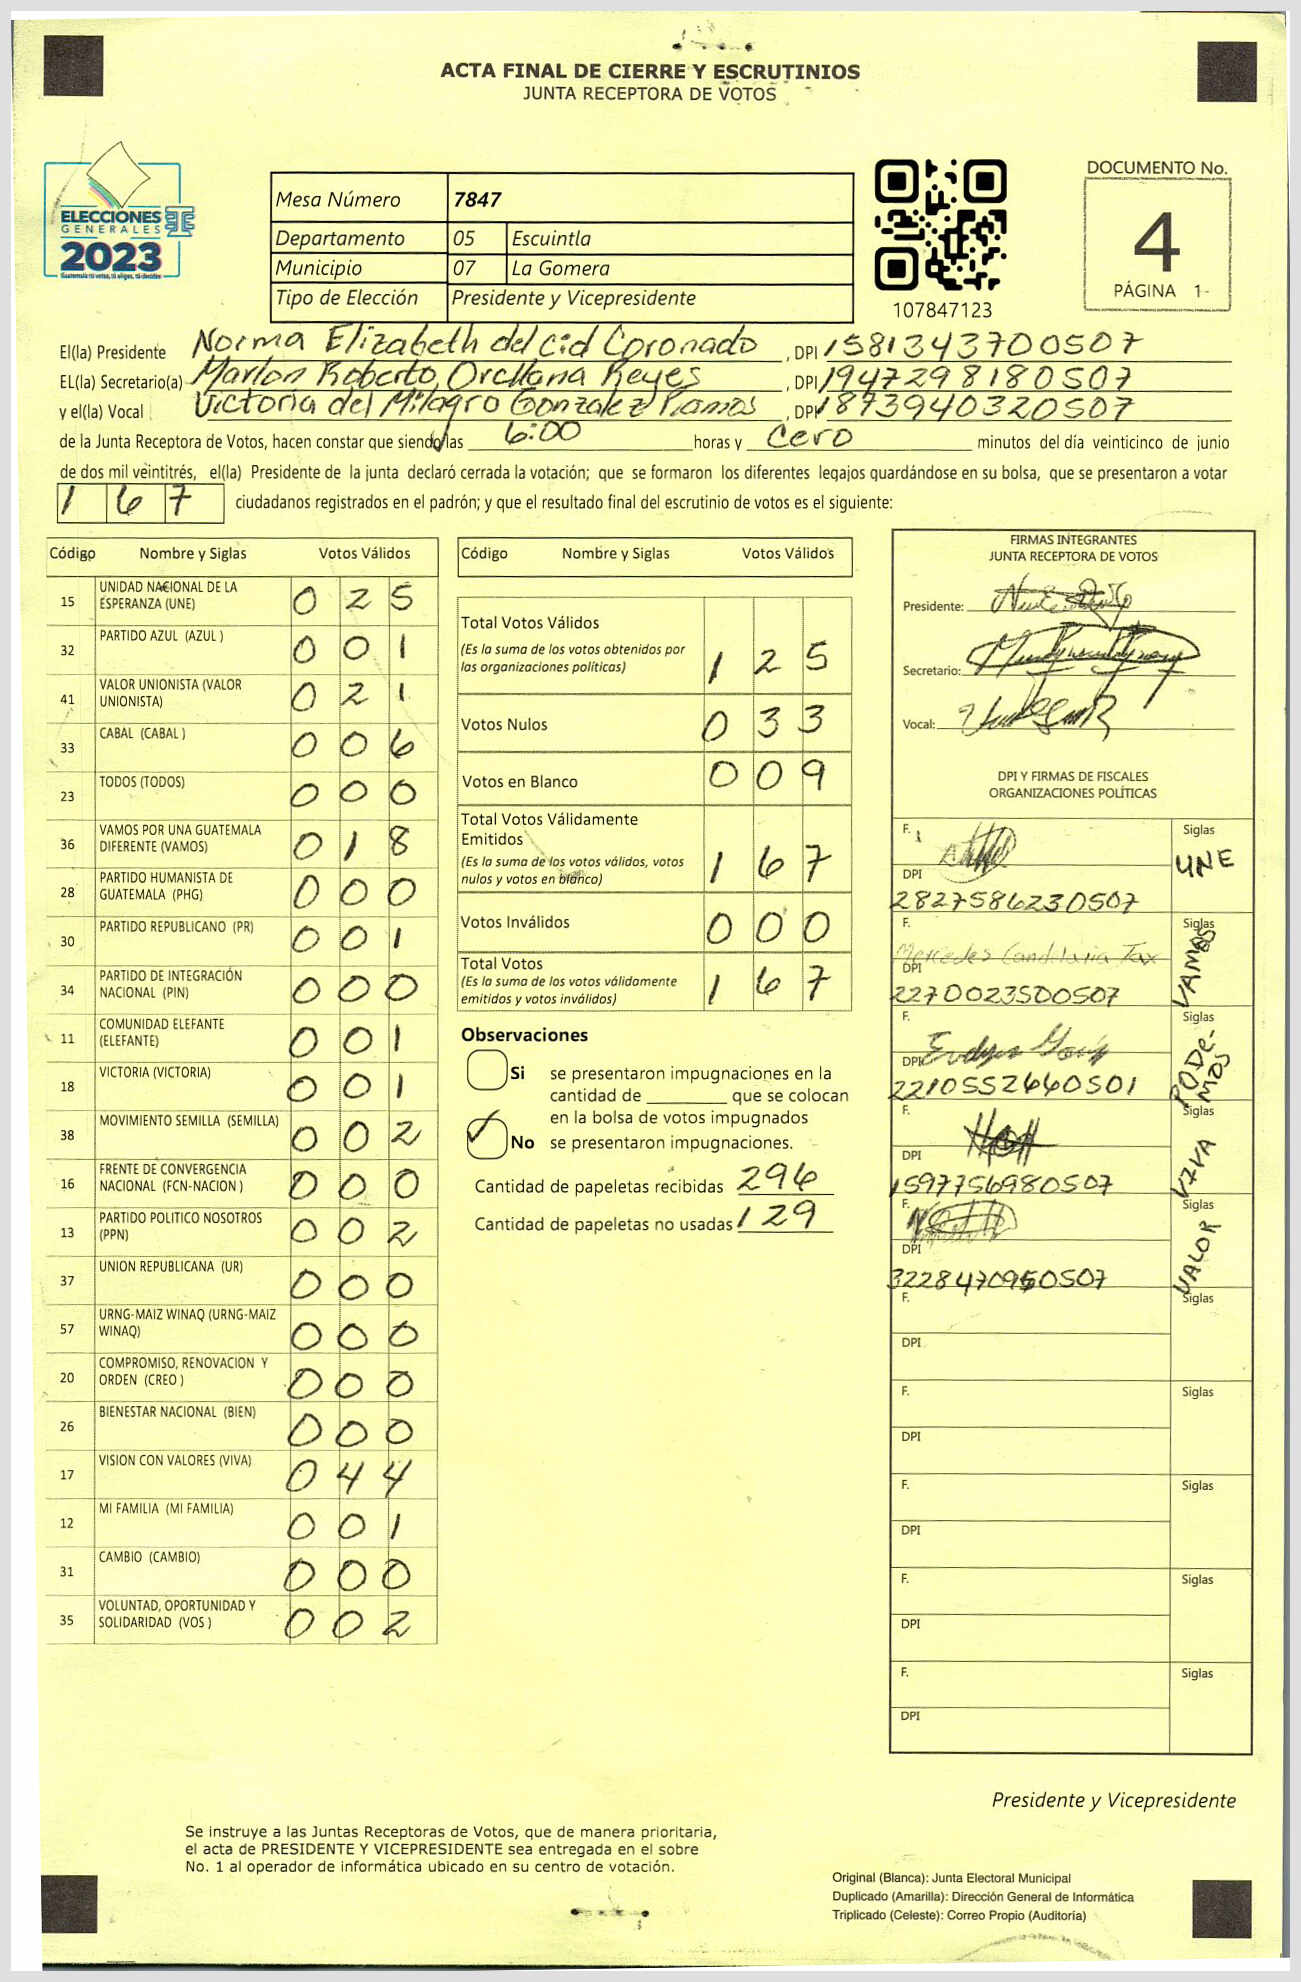 ACTA FINAL DE CIERRE Y ESCRUTINIOS
JUNTA RECEPTORA DE VOTOS
ELECCIONES
GENERALES
2023
Mesa Número 7847
Departamento 05 Escuintla
Municipio 07 La Gomera
Tipo de Elección Presidente y Vicepresidente
107847123
DOCUMENTO No.
4
PÁGINA 1-
El(la) Presidente Norma Elizabeth del Cid Coronado , DPI 1581343700507
EL(la) Secretario(a) Marlon Roberto Orellana Reyes , DPI 1947298180507
y el(la) Vocal Victoria del Milagro Gonzalez Ramos , DPI 1873940320507
de la Junta Receptora de Votos, hacen constar que siendo las 6:00 horas y cero minutos del día veinticinco de junio
de dos mil veintitrés, el(la) Presidente de la junta declaró cerrada la votación; que se formaron los diferentes legajos guardándose en su bolsa, que se presentaron a votar
167 ciudadanos registrados en el padrón; y que el resultado final del escrutinio de votos es el siguiente:
Código Nombre y Siglas Votos Válidos
15 UNIDAD NACIONAL DE LA ESPERANZA (UNE) 025
32 PARTIDO AZUL (AZUL ) 001
41 VALOR UNIONISTA (VALOR UNIONISTA) 021
33 CABAL (CABAL ) 006
23 TODOS (TODOS) 000
36 VAMOS POR UNA GUATEMALA DIFERENTE (VAMOS) 018
28 PARTIDO HUMANISTA DE GUATEMALA (PHG) 000
30 PARTIDO REPUBLICANO (PR) 001
34 PARTIDO DE INTEGRACIÓN NACIONAL (PIN) 000
11 COMUNIDAD ELEFANTE (ELEFANTE) 001
18 VICTORIA (VICTORIA) 001
38 MOVIMIENTO SEMILLA (SEMILLA) 002
16 FRENTE DE CONVERGENCIA NACIONAL (FCN-NACION ) 000
13 PARTIDO POLITICO NOSOTROS (PPN) 002
37 UNION REPUBLICANA (UR) 000
57 URNG-MAIZ WINAQ (URNG-MAIZ WINAQ) 000
20 COMPROMISO, RENOVACION Y ORDEN (CREO ) 000
26 BIENESTAR NACIONAL (BIEN) 000
17 VISION CON VALORES (VIVA) 044
12 MI FAMILIA (MI FAMILIA) 001
31 CAMBIO (CAMBIO) 000
35 VOLUNTAD, OPORTUNIDAD Y SOLIDARIDAD (VOS ) 002
Código Nombre y Siglas Votos Válidos
Total Votos Válidos 125
(Es la suma de los votos obtenidos por
las organizaciones políticas)
Votos Nulos 033
Votos en Blanco 009
Total Votos Válidamente
Emitidos 167
(Es la suma de los votos válidos, votos
nulos y votos en blanco)
Votos Inválidos 000
Total Votos 167
(Es la suma de los votos válidamente
emitidos y votos inválidos)
Observaciones
Si se presentaron impugnaciones en la
cantidad de ________ que se colocan
en la bolsa de votos impugnados
✓ No se presentaron impugnaciones.
Cantidad de papeletas recibidas 296
Cantidad de papeletas no usadas 129
FIRMAS INTEGRANTES
JUNTA RECEPTORA DE VOTOS
Presidente:
Secretario:
Vocal:
DPI Y FIRMAS DE FISCALES
ORGANIZACIONES POLÍTICAS
F. Siglas UNE
DPI 2827586230507
F. Mercedes Candelaria Tax Siglas VAMOS
DPI 2270023500507
F. Siglas PODE-MOS
DPI 2210552660501
F. Siglas VIVA
DPI 1597756980507
F. Siglas VALOR
DPI 3228470950507
F. Siglas
DPI
F. Siglas
DPI
F. Siglas
DPI
F. Siglas
DPI
F. Siglas
DPI
Presidente y Vicepresidente
Se instruye a las Juntas Receptoras de Votos, que de manera prioritaria,
el acta de PRESIDENTE Y VICEPRESIDENTE sea entregada en el sobre
No. 1 al operador de informática ubicado en su centro de votación.
Original (Blanca): Junta Electoral Municipal
Duplicado (Amarilla): Dirección General de Informática
Triplicado (Celeste): Correo Propio (Auditoría)